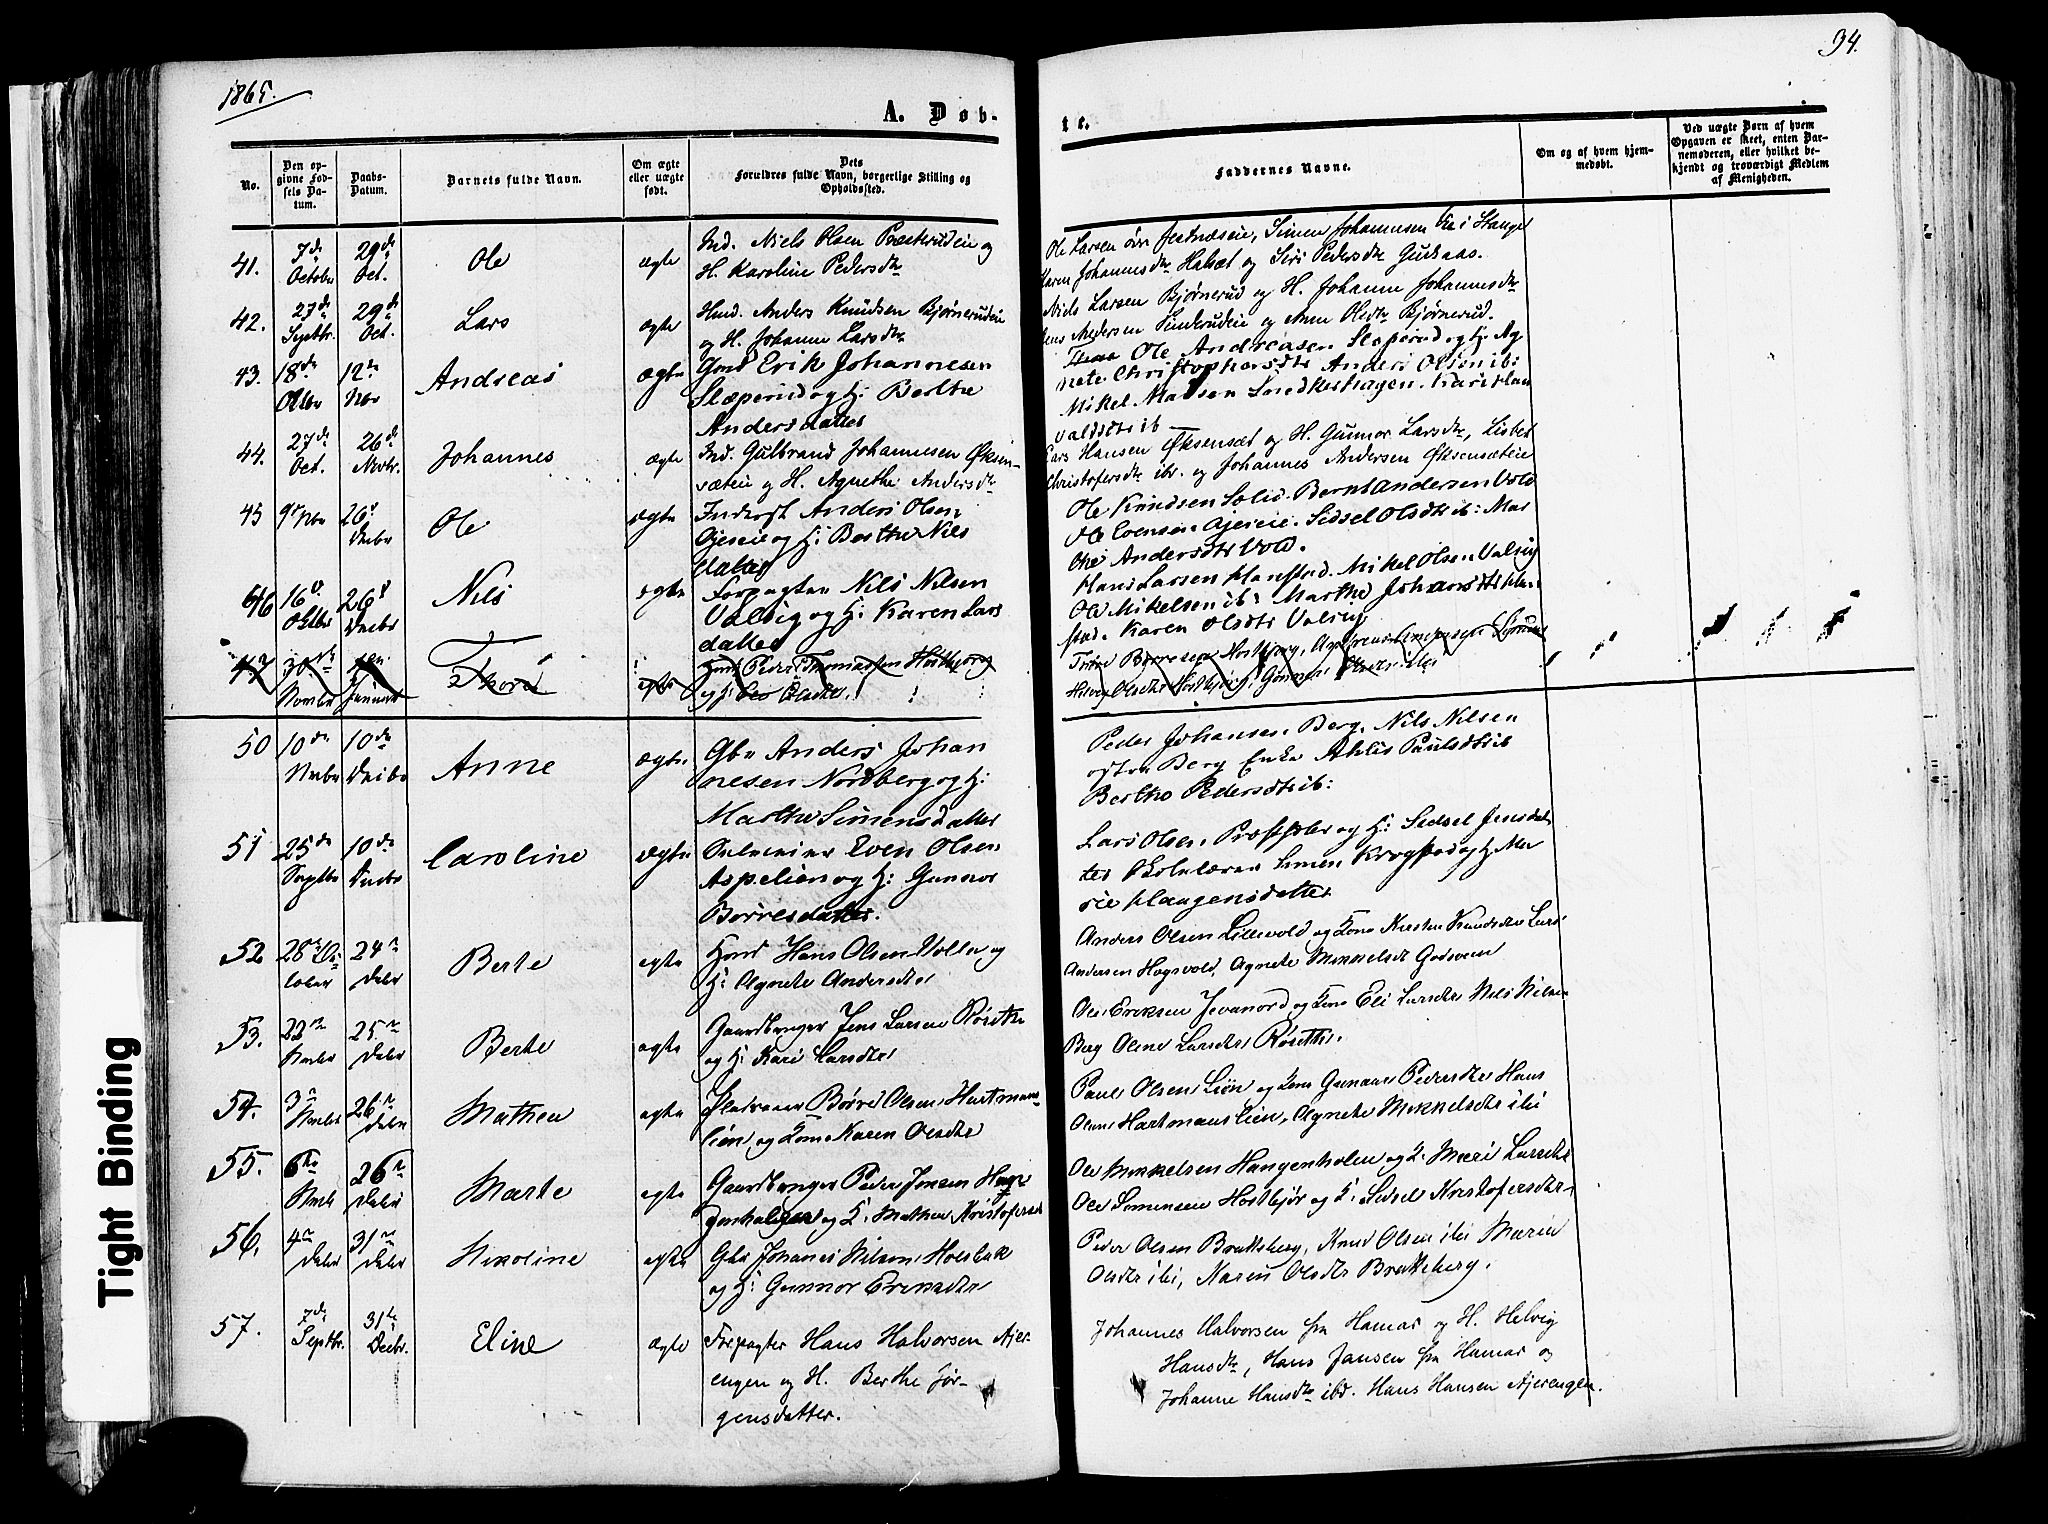 1865.
34.
A. Døb-
te.
No.
Den op-
givne Fød-
sels Da-
tum.
Daabs-
Datum.
Barnets fulde Navn.
Om ægte
eller uægte
født.
Dets
Forældres fulde Navn, borgerlige Stilling og
Opholdssted.
Faddernes Navne.
Om og af hvem hjem-
medøbt.
Ved uægte Børn af hvem
Opgaven er skeet, enten Bar-
nemoderen, eller hvilket be-
kjendt og troværdigt Medlem
af Menigheden.
41.
7de
October
29de
Oct.
Ole
ægte
Ind. Niels Olsen Præsterudeie og
H. Karoline Pedersdtr
Ole Larsen Jesnæseie, Simen Johannesen Eie i Stange
Karen Johannesdtr Halset og Siri Pedersdtr Gudaas.
42.
27de
Septbr.
29de
Oct.
Lars
ægte
Hmd. Anders Knudsen Bjørnerudeie
og H. Johanne Larsdtr
Niels Larsen Bjørnerud og H. Johanne Johannesdtr
Jens Andersen Sinderudeie og Anne Olesdtr Bjørnerud.
43.
18de
Oktbr
12te
Nbr
Andreas
ægte
Hmd Erik Johannesen
Slæperud og H: Berthe
Andersdatter
Ole Andreasen Slæperud og H: Ag-
nete Christophersdtr Anders Olsen ib:
Mikel Madsen Snedkerhagen. Kari Han
valdsdtr ib
44.
27de
Oct.
26de
Novbr.
Johannes
ægte
Ind. Gulbrand Johannesen Øksen-
sæteie og H. Agnethe Andersdtr
Lars Hansen Øksensæt og H. Gunnor Larsdtr, Lisbet
Christofersdtr ibr. og Johannes Andersen Øksensæteie
45
9de Nbr
26d
Decbr
Ole
ægte
Inderst Anders Olsen
Ajeseie og H: Berthe Nils
datter
Ole Knudsen Sælid. Bernt Andersen Vold
Ole Evensen Ajeseie. Sidsel Olsdtr ib: Mar
the Andersdtr Vold.
46
16d
Oktbr
26d
Decbr
Nils
ægte
Forpagter Nils Nilsen
Valsig og H: Karen Lars
datter
Hans Larsen Hanstad. Mikel Olsen Valsig
Ole Mikelsen ib: Marthe Johansdtr Han-
stad. Karen Olsdtr Valsig
47
30te
Novbr
Januar
Thore
ægte
Hmd Peder Thomassen Hostbjørg
og H:
Thore Børresen Hostbjørg,
Helvig Olsdtr Hostbjørg, Gunnor
50
10de
Novbr
10de
Decbr
Anne
ægte
Gbr Anders Johan
nesen Nordberg og H:
Marthe Simensdatter
Peder Johansen Berg. Nils Nilsen
østre Berg Enke Ahlis Paulsdtr ib
Berthe Pedersdtr ib:
51
25de
Septbr
10de
Decbr
Caroline
ægte
Selveier Even Olsen
Aspelien og H: Gunnor
Børresdatter.
Lars Olsen Præstholer og H: Sidsel Jensdat
ter Skolelærer Simen Krogstad og H. Ma
rie Haagensdatter
52
28de Oc
tober
24de
Debr
Berte
egte
Hmd Hans Olsen Volla og
H: Agnete Andersdtr
Anders Olsen Lillevold og Kone Kirsten Knudsdtr Lars
Andersen Hogsvold, Agnete Mikkelsdt Godsveen
53.
22de
Novbr
25de
Debr
Berte
egte
Gaardbruger Jens Larsen Røseth
og H: Kari Larsdtr
Ole Eriksen Jevanord og Kone Eli Larsdtr Nils Nilsen
Berg Oline Larsdtr Røseth.
54.
3de
Novbr
26de
Debr
Mathea
egte
Børre Olsen Hartmans-
lien og Kone Karen Olsdtr
Paul Olsen Lien og Kone Gunnor Pedersdtr Hans
Olsen Hartmanslien, Agnete Mikkelsdtr ibi
55.
6te
Novbr
26de
Debr
Marte
egte
Gaardbruger Peder Jonsen Hage-
og K: Mathea Kristofersd
Ole Mikkelsen Haugenholen og K: Mari Larsdtr
Ole Simensen Hostbjør og K: Sidsel Kristofersdtr.
56.
4de
Debr
31te
Debr
Nikoline
egte
Gbr Johanes Nilsen Holsbak
og H: Gunnor Eriksdtr
Peder Olsen Brattsberg, Knud Olsen ibi Marin
Olsdtr ibi, Karen Olsdtr Bratsberg.
57.
7de
Septbr.
31te
Decbr.
Eline
ægte
Forpagter Hans Halvorsen Ajer-
engen og H. Berthe Jør-
gensdatter.
Johannes Halvorsen fra Hamar og H. Helvig
Hansdtr, Hans Jansen fra Hamar og
Johanne Hansdtr ibd. Hans Hansen Ajerengen.
Tight Binding